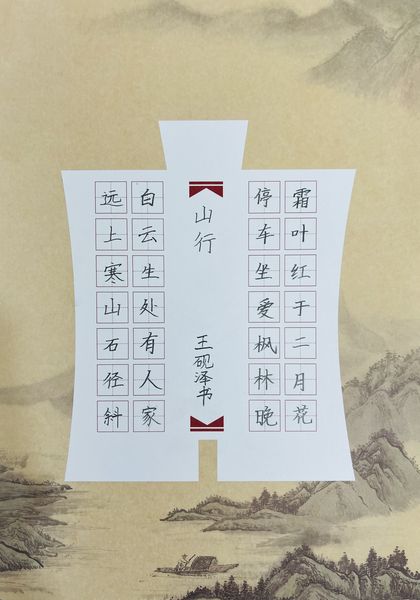 山行
远上寒山石径斜
白云生处有人家
停车坐爱枫林晚
霜叶红于二月花
王砚泽书